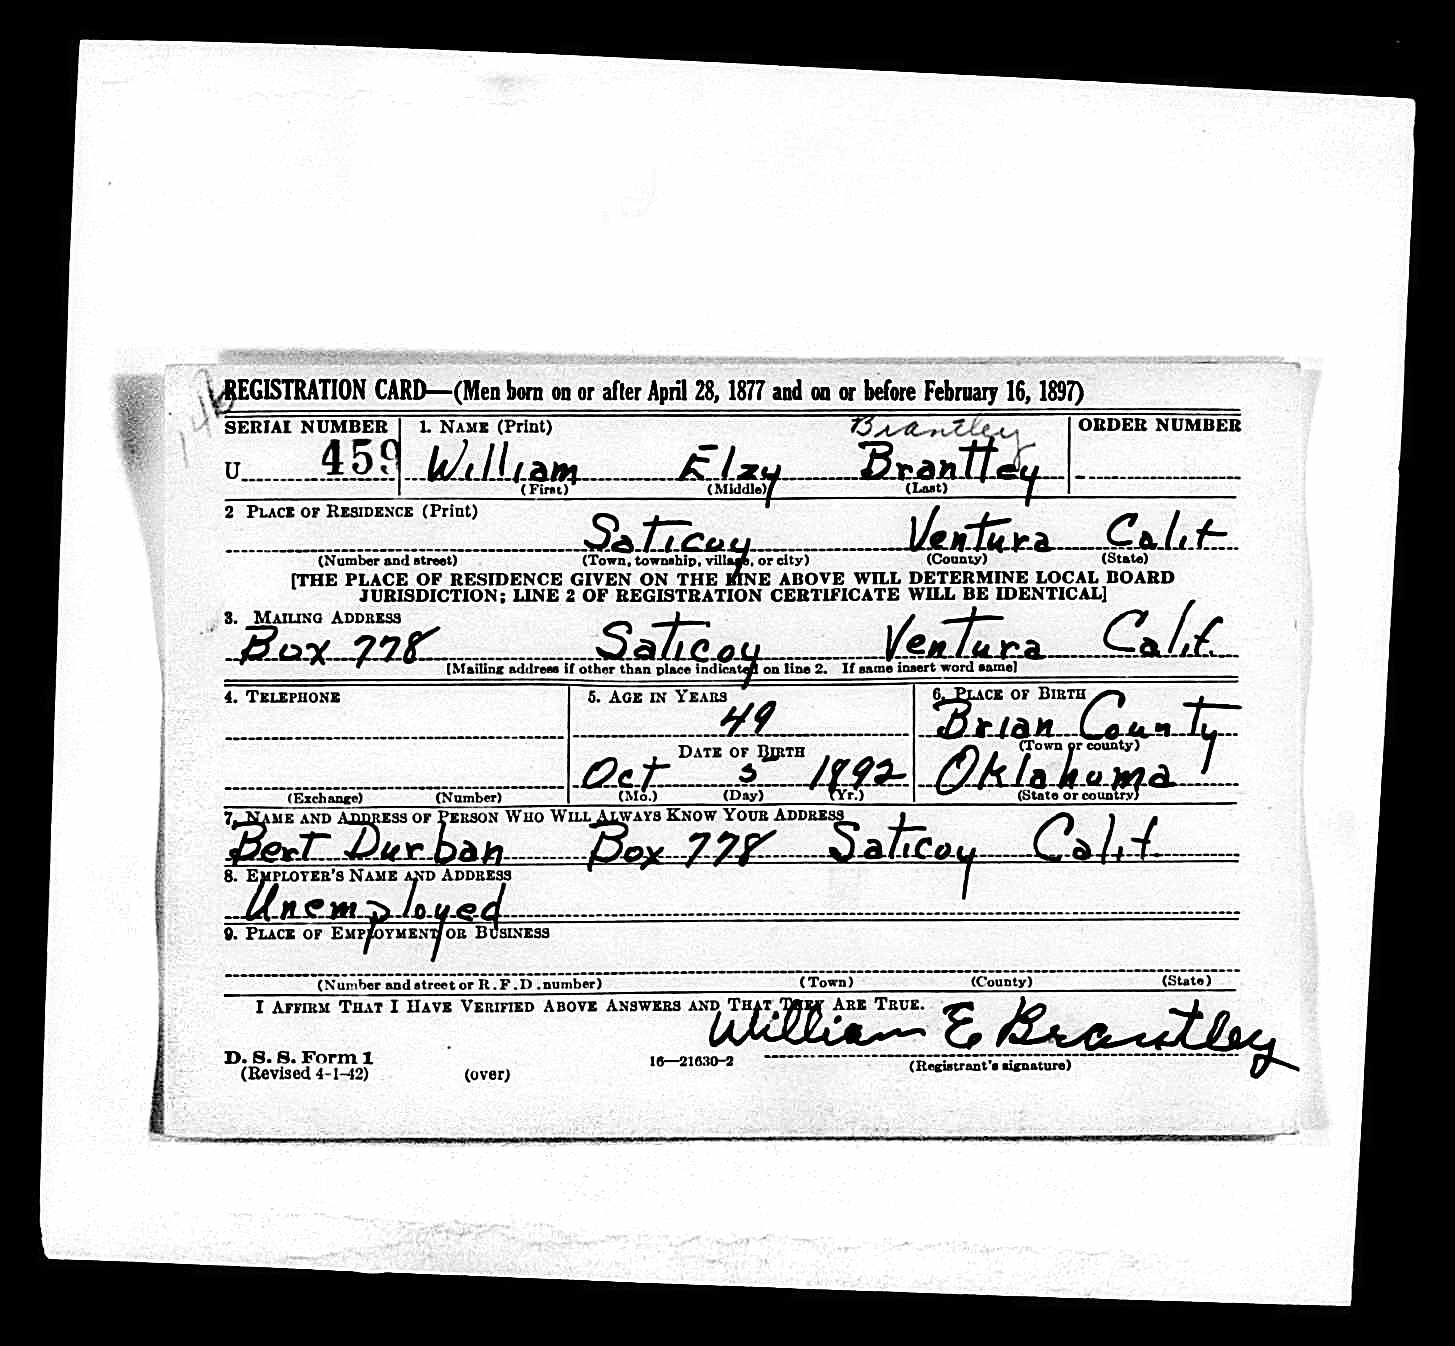 REGISTRATION CARD—(Men born on or after April 28, 1877 and on or before February 16, 1897)
SERIAL NUMBER 1. NAME (Print) Brantley ORDER NUMBER
U 459 William Elzy Brantley
(First) (Middle) (Last)
2 PLACE OF RESIDENCE (Print)
Saticoy Ventura Calif
(Number and street) (Town, township, village, or city) (County) (State)
[THE PLACE OF RESIDENCE GIVEN ON THE LINE ABOVE WILL DETERMINE LOCAL BOARD
JURISDICTION; LINE 2 OF REGISTRATION CERTIFICATE WILL BE IDENTICAL]
3. MAILING ADDRESS
Box 778 Saticoy Ventura Calif.
[Mailing address if other than place indicated on line 2. If same insert word same]
4. TELEPHONE 5. AGE IN YEARS 6. PLACE OF BIRTH
49 Brian County
DATE OF BIRTH (Town or county)
Oct 5 1892 Oklahoma
(Exchange) (Number) (Mo.) (Day) (Yr.) (State or country)
7. NAME AND ADDRESS OF PERSON WHO WILL ALWAYS KNOW YOUR ADDRESS
Bert Durban Box 778 Saticoy Calif.
8. EMPLOYER'S NAME AND ADDRESS
Unemployed
9. PLACE OF EMPLOYMENT OR BUSINESS
(Number and street or R. F. D. number) (Town) (County) (State)
I AFFIRM THAT I HAVE VERIFIED ABOVE ANSWERS AND THAT THEY ARE TRUE.
William E Brantley
D. S. S. Form 1
(Revised 4-1-42) (over) 16—21630-2 (Registrant's signature)